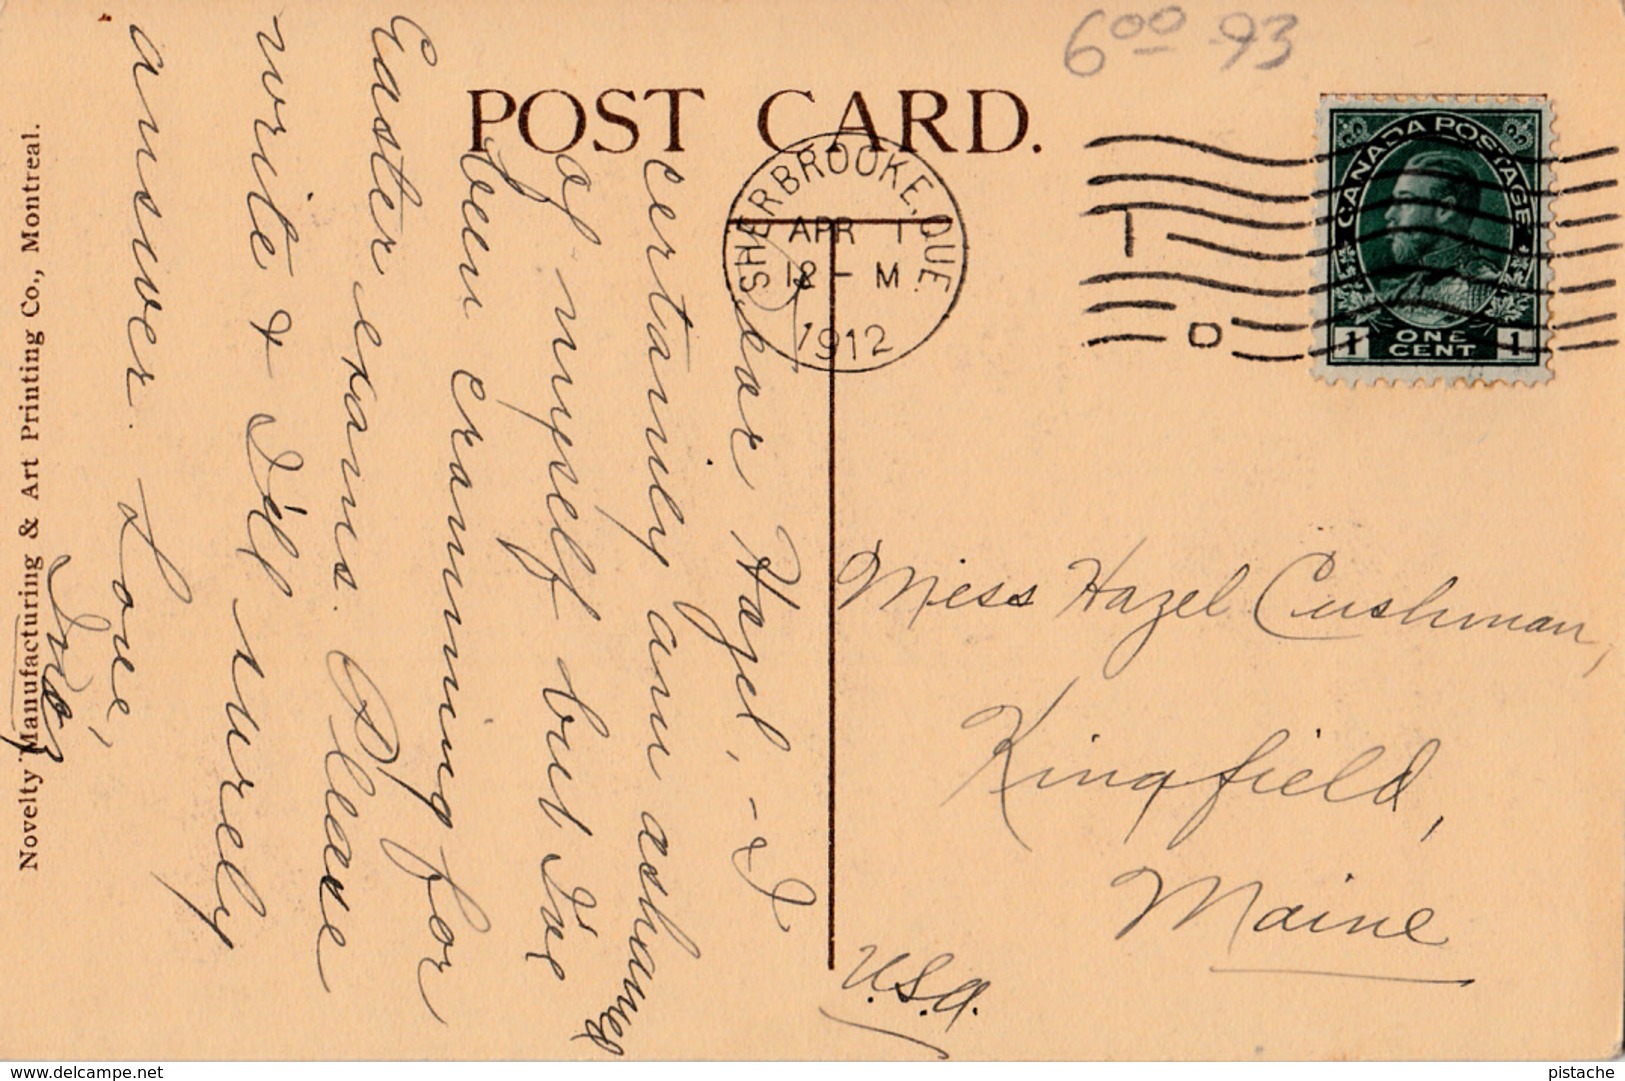 6 00 93
POST CARD.
SHERBROOKE, QUE.
APR 1
12 - M
1912
CANADA POSTAGE
1 ONE CENT 1
Dear Hazel, - I
certainly am ashamed
of myself but I've
been cramming for
Easter exams. Please
write & I'll surely
answer. Love,
Inez
Miss Hazel Cushman,
Kingfield,
Maine
U.S.A.
Novelty Manufacturing & Art Printing Co., Montreal.
https://www.delcampe.net
pistache